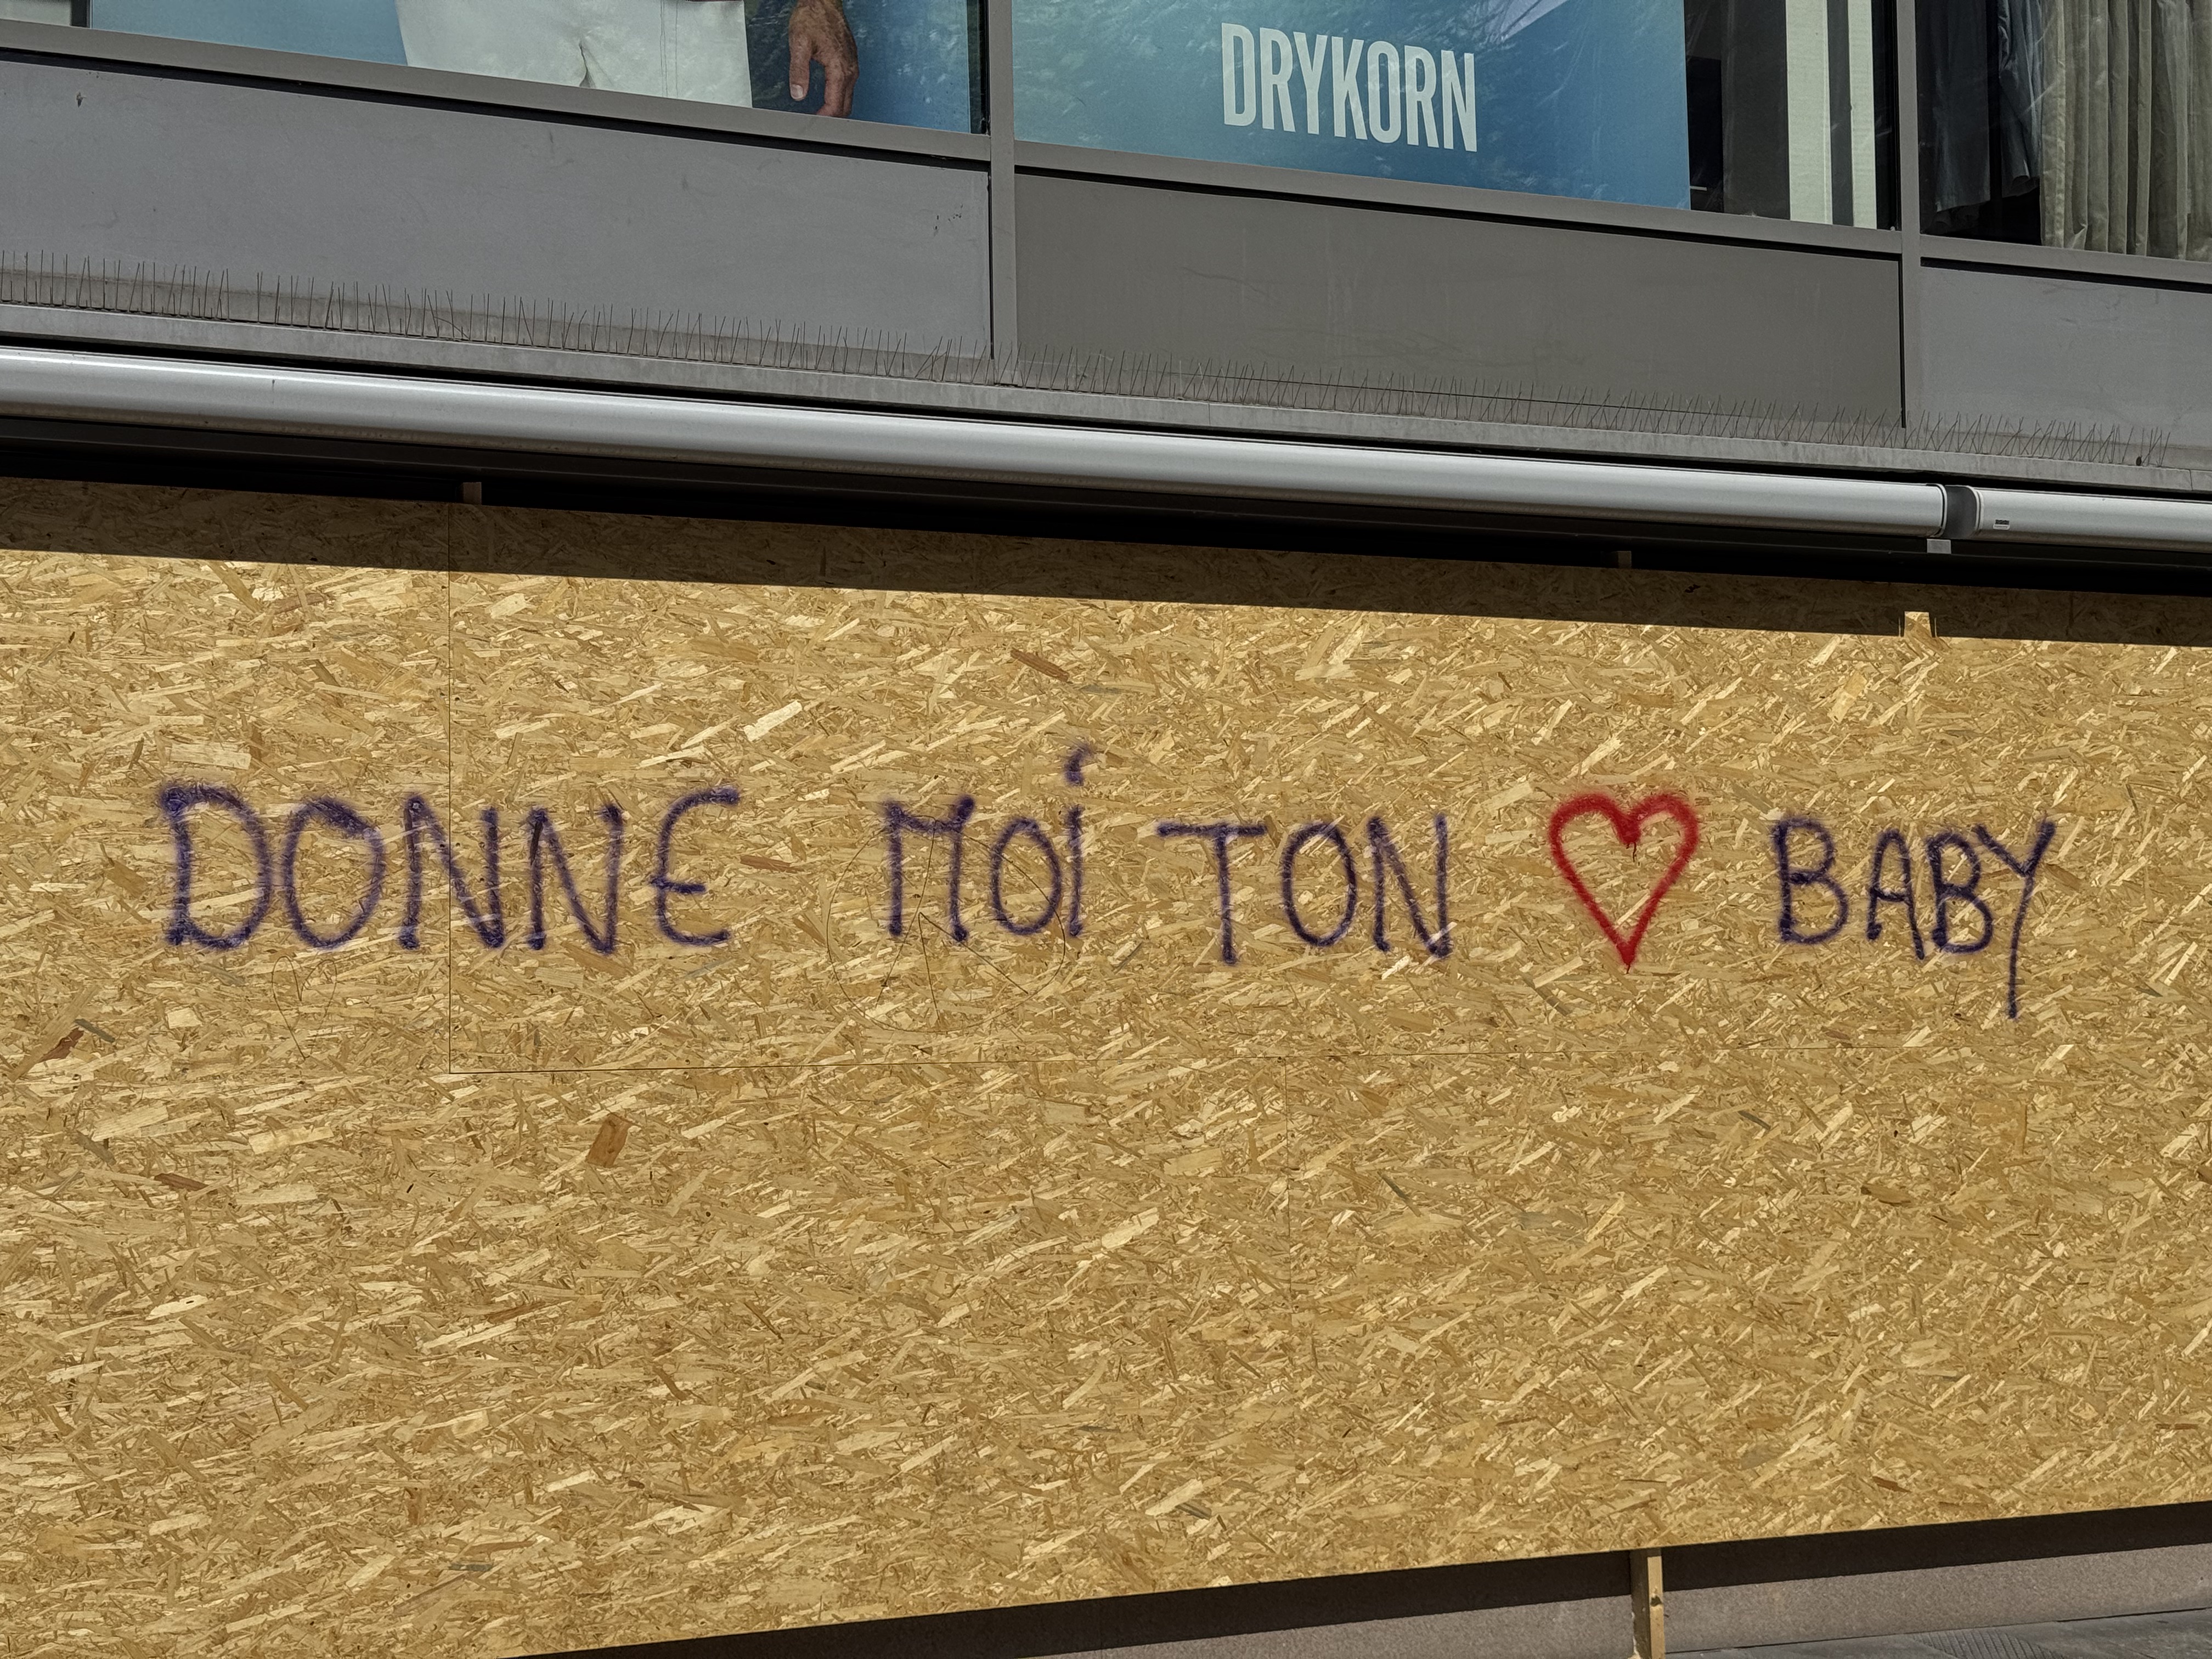 DRYKORN
DONNE MOi TON ♡ BABY